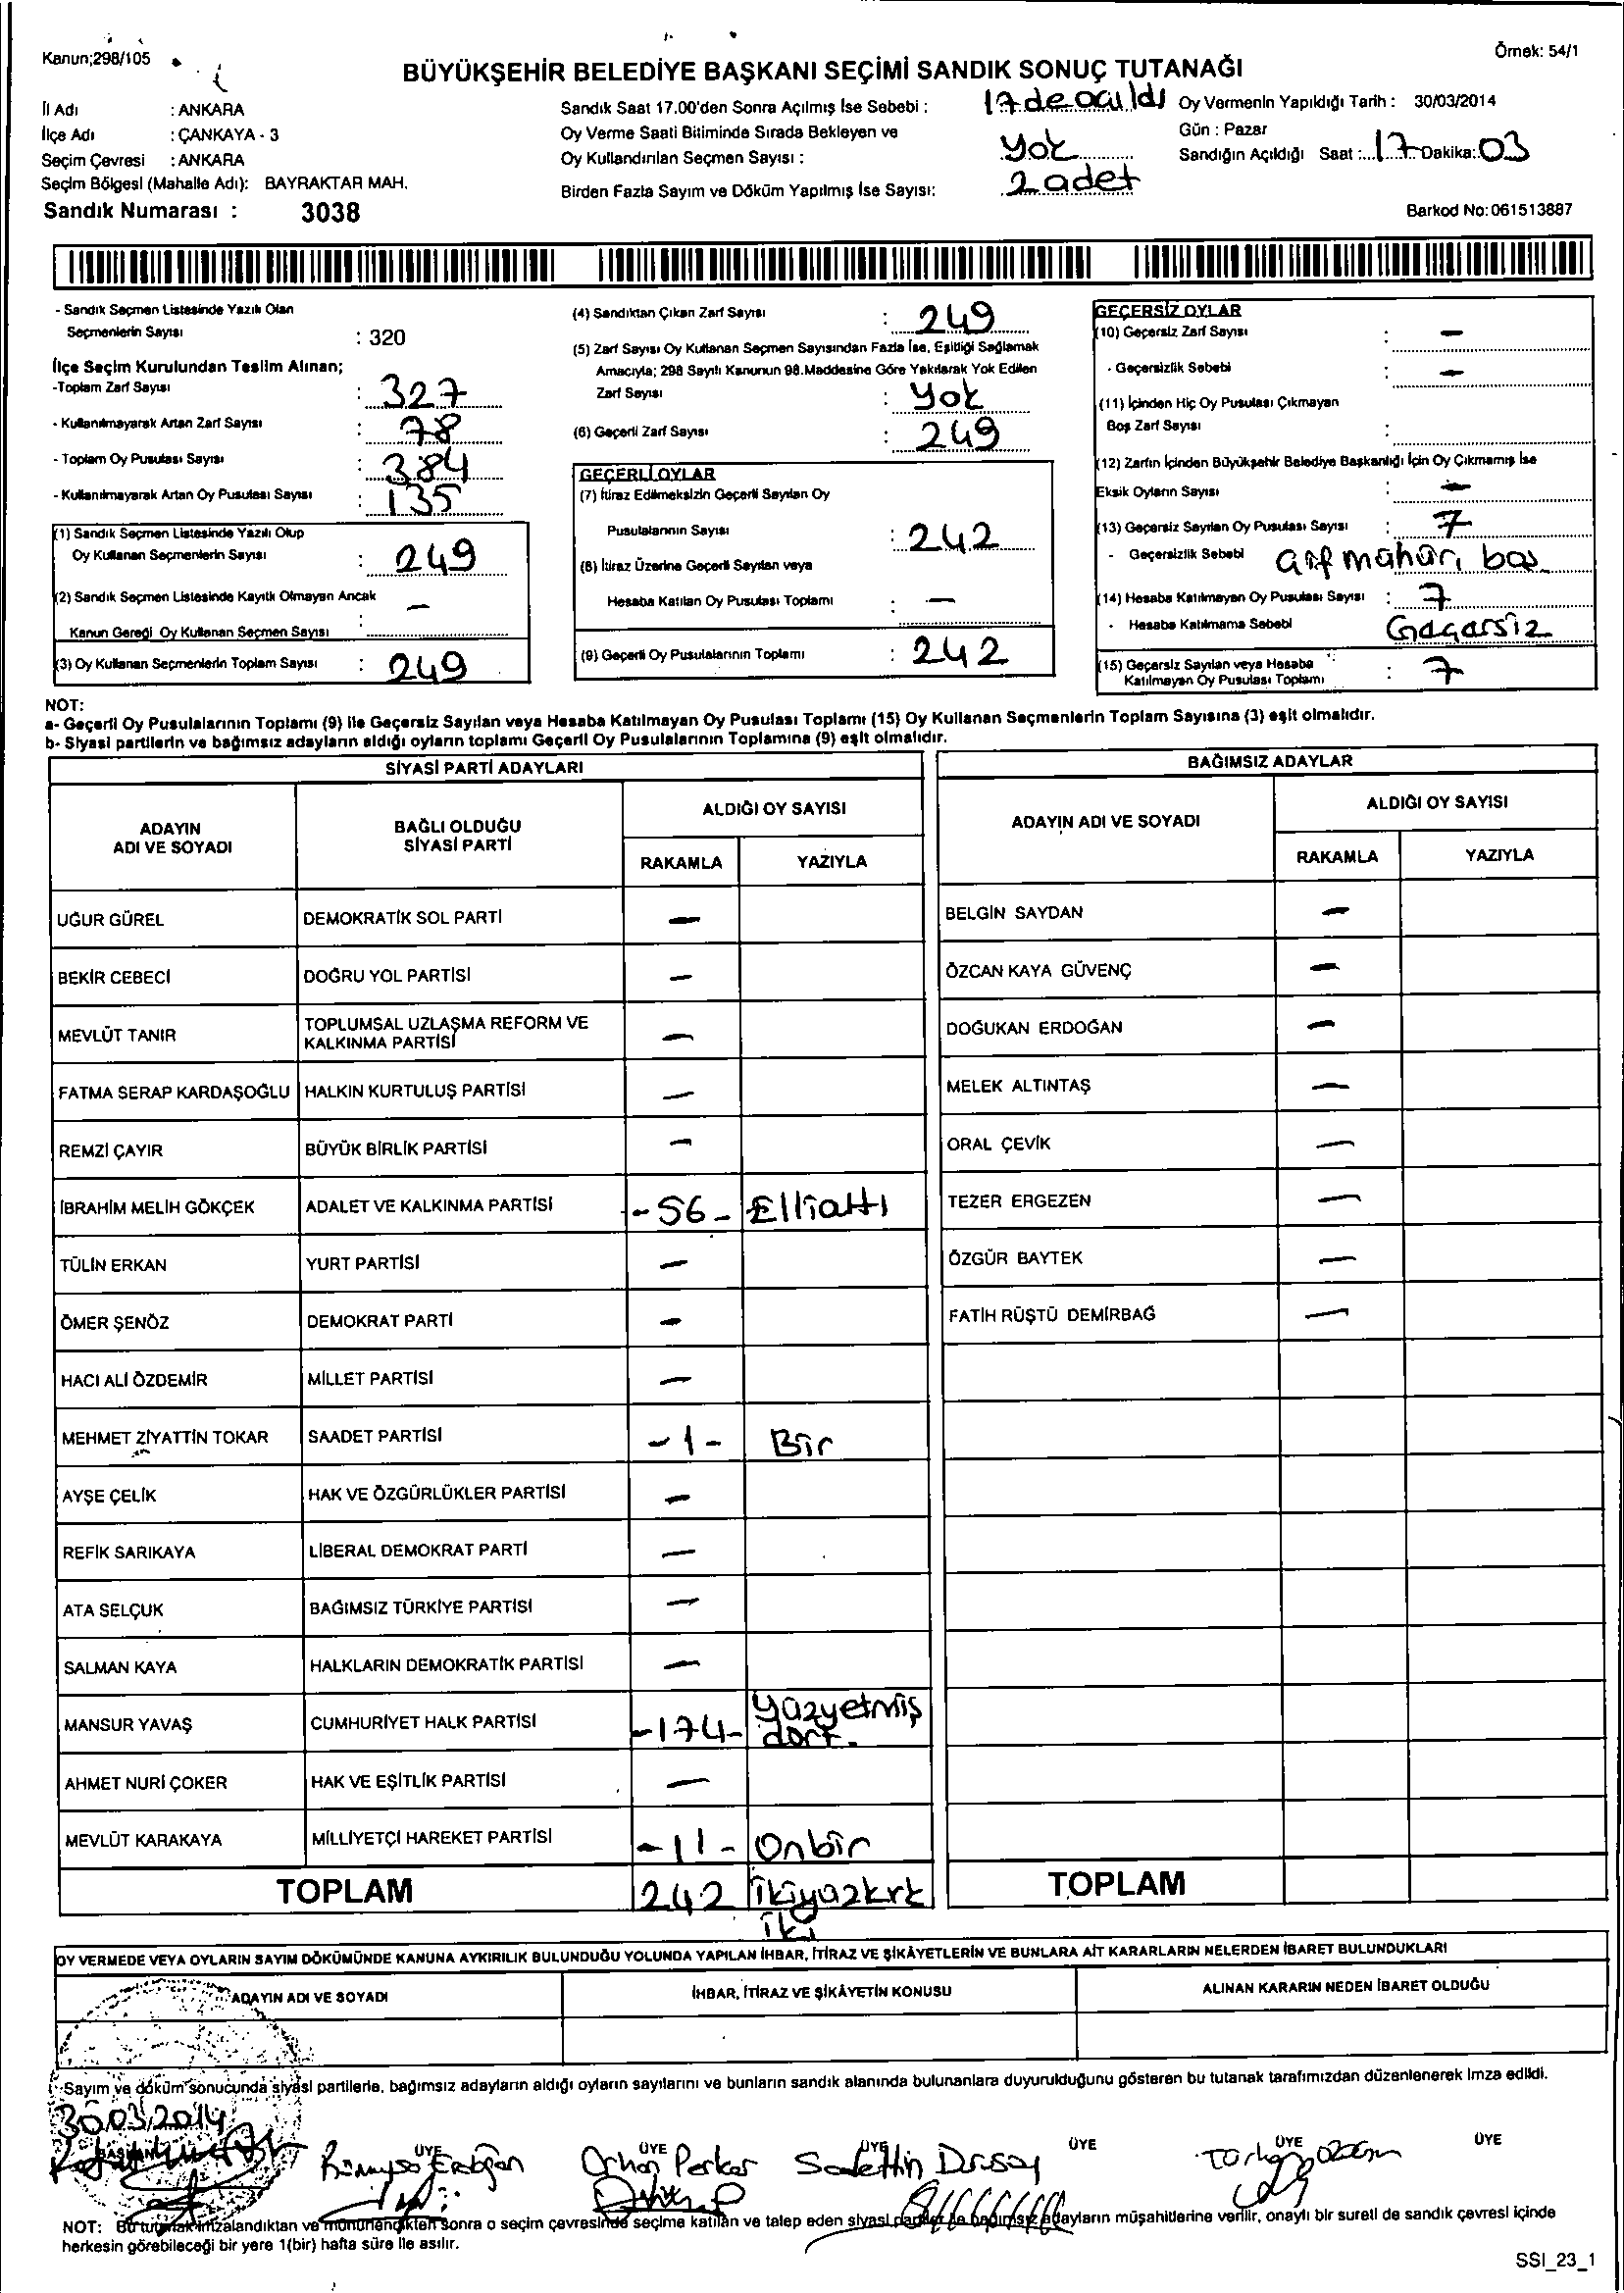 Kanun;298/105
Örnek: 54/1
BÜYÜKŞEHİR BELEDİYE BAŞKANI SEÇİMİ SANDIK SONUÇ TUTANAĞI
İl Adı : ANKARA
İlçe Adı : ÇANKAYA - 3
Seçim Çevresi : ANKARA
Seçim Bölgesi (Mahalle Adı): BAYRAKTAR MAH.
Sandık Numarası : 3038
Sandık Saat 17.00'den Sonra Açılmış İse Sebebi : 17 de açıldı
Oy Verme Saati Bitiminde Sırada Bekleyen ve
Oy Kullandırılan Seçmen Sayısı : Yok
Birden Fazla Sayım ve Döküm Yapılmış İse Sayısı: 2 adet
Oy Vermenin Yapıldığı Tarih : 30/03/2014
Gün : Pazar
Sandığın Açıldığı Saat : 17 Dakika: 03
Barkod No: 061513887
- Sandık Seçmen Listesinde Yazılı Olan
Seçmenlerin Sayısı : 320
İlçe Seçim Kurulundan Teslim Alınan;
-Toplam Zarf Sayısı : 327
- Kullanılmayarak Artan Zarf Sayısı : 78
- Toplam Oy Pusulası Sayısı : 384
- Kullanılmayarak Artan Oy Pusulası Sayısı : 135
(1) Sandık Seçmen Listesinde Yazılı Olup
Oy Kullanan Seçmenlerin Sayısı : 249
(2) Sandık Seçmen Listesinde Kayıtlı Olmayan Ancak
Kanun Gereği Oy Kullanan Seçmen Sayısı : -
(3) Oy Kullanan Seçmenlerin Toplam Sayısı : 249
(4) Sandıktan Çıkan Zarf Sayısı : 249
(5) Zarf Sayısı Oy Kullanan Seçmen Sayısından Fazla İse, Eşitliği Sağlamak
Amacıyla; 298 Sayılı Kanunun 98.Maddesine Göre Yakılarak Yok Edilen
Zarf Sayısı : Yok
(6) Geçerli Zarf Sayısı : 249
GEÇERLİ OYLAR
(7) İtiraz Edilmeksizin Geçerli Sayılan Oy
Pusulalarının Sayısı : 242
(8) İtiraz Üzerine Geçerli Sayılan veya
Hesaba Katılan Oy Pusulası Toplamı : -
(9) Geçerli Oy Pusulalarının Toplamı : 242
GEÇERSİZ OYLAR
(10) Geçersiz Zarf Sayısı : -
- Geçersizlik Sebebi : -
(11) İçinden Hiç Oy Pusulası Çıkmayan
Boş Zarf Sayısı :
(12) Zarfın İçinden Büyükşehir Belediye Başkanlığı İçin Oy Çıkmamış İse
Eksik Oyların Sayısı : -
(13) Geçersiz Sayılan Oy Pusulası Sayısı : 7
- Geçersizlik Sebebi
(14) Hesaba Katılmayan Oy Pusulası Sayısı : 7
- Hesaba Katılmama Sebebi Gaçarsiz
(15) Geçersiz Sayılan veya Hesaba
Katılmayan Oy Pusulası Toplamı : 7
NOT:
a- Geçerli Oy Pusulalarının Toplamı (9) ile Geçersiz Sayılan veya Hesaba Katılmayan Oy Pusulası Toplamı (15) Oy Kullanan Seçmenlerin Toplam Sayısına (3) eşit olmalıdır.
b- Siyasi partilerin ve bağımsız adayların aldığı oyların toplamı Geçerli Oy Pusulalarının Toplamına (9) eşit olmalıdır.
SİYASİ PARTİ ADAYLARI
ADAYIN ADI VE SOYADI
BAĞLI OLDUĞU SİYASİ PARTİ
ALDIĞI OY SAYISI
RAKAMLA YAZIYLA
UĞUR GÜREL DEMOKRATİK SOL PARTİ -
BEKİR CEBECİ DOĞRU YOL PARTİSİ -
MEVLÜT TANIR TOPLUMSAL UZLAŞMA REFORM VE KALKINMA PARTİSİ -
FATMA SERAP KARDAŞOĞLU HALKIN KURTULUŞ PARTİSİ -
REMZİ ÇAYIR BÜYÜK BİRLİK PARTİSİ -
İBRAHİM MELİH GÖKÇEK ADALET VE KALKINMA PARTİSİ -56- Elliattı
TÜLİN ERKAN YURT PARTİSİ -
ÖMER ŞENÖZ DEMOKRAT PARTİ -
HACI ALİ ÖZDEMİR MİLLET PARTİSİ -
MEHMET ZİYATTİN TOKAR SAADET PARTİSİ -1- Bir
AYŞE ÇELİK HAK VE ÖZGÜRLÜKLER PARTİSİ -
REFİK SARIKAYA LİBERAL DEMOKRAT PARTİ -
ATA SELÇUK BAĞIMSIZ TÜRKİYE PARTİSİ -
SALMAN KAYA HALKLARIN DEMOKRATİK PARTİSİ -
MANSUR YAVAŞ CUMHURİYET HALK PARTİSİ -174- yüzyetmiş dört.
AHMET NURİ ÇOKER HAK VE EŞİTLİK PARTİSİ -
MEVLÜT KARAKAYA MİLLİYETÇİ HAREKET PARTİSİ -11- Onbir
TOPLAM 242 İkiyüzkrk iki
BAĞIMSIZ ADAYLAR
ADAYIN ADI VE SOYADI
ALDIĞI OY SAYISI
RAKAMLA YAZIYLA
BELGİN SAYDAN -
ÖZCAN KAYA GÜVENÇ -
DOĞUKAN ERDOĞAN -
MELEK ALTINTAŞ -
ORAL ÇEVİK -
TEZER ERGEZEN -
ÖZGÜR BAYTEK -
FATİH RÜŞTÜ DEMİRBAĞ -
TOPLAM
OY VERMEDE VEYA OYLARIN SAYIM DÖKÜMÜNDE KANUNA AYKIRILIK BULUNDUĞU YOLUNDA YAPILAN İHBAR, İTİRAZ VE ŞİKÂYETLERİN VE BUNLARA AİT KARARLARIN NELERDEN İBARET BULUNDUKLARI
ADAYIN ADI VE SOYADI
İHBAR, İTİRAZ VE ŞİKÂYETİN KONUSU
ALINAN KARARIN NEDEN İBARET OLDUĞU
Sayım ve döküm sonucunda siyasi partilerle, bağımsız adayların aldığı oyların sayılarını ve bunların sandık alanında bulunanlara duyurulduğunu gösteren bu tutanak tarafımızdan düzenlenerek imza edildi.
30.03.2014
BAŞKAN ÜYE ÜYE ÜYE ÜYE ÜYE ÜYE
Orhan Perker
NOT: Bu tutanak imzalandıktan ve mühürlendikten sonra o seçim çevresinde seçime katılan ve talep eden siyasi partiler ile bağımsız adayların müşahitlerine verilir, onaylı bir sureti de sandık çevresi içinde
herkesin görebileceği bir yere 1(bir) hafta süre ile asılır.
SSI_23_1